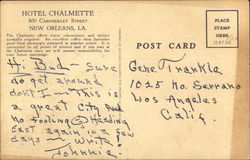 HOTEL CHALMETTE
800 CARONDELET STREET
NEW ORLEANS, LA.
The Chalmette offers every convenience and service
normally required. An excellent coffee shop furnishes
good food pleasantly prepared at popular prices. It is
convenient to all points of interest and if you stop at
the Chalmette once, we will assume responsibility for
your future patronage.
POST CARD
PLACE
STAMP
HERE
Hi Bud - Sure
do get around
don't I - This is
a great city and
no fooling Heading
East again in a few
days - Write
Johnnie.
Gene Trankle
1025 No. Serrano
Los Angeles
Calif.